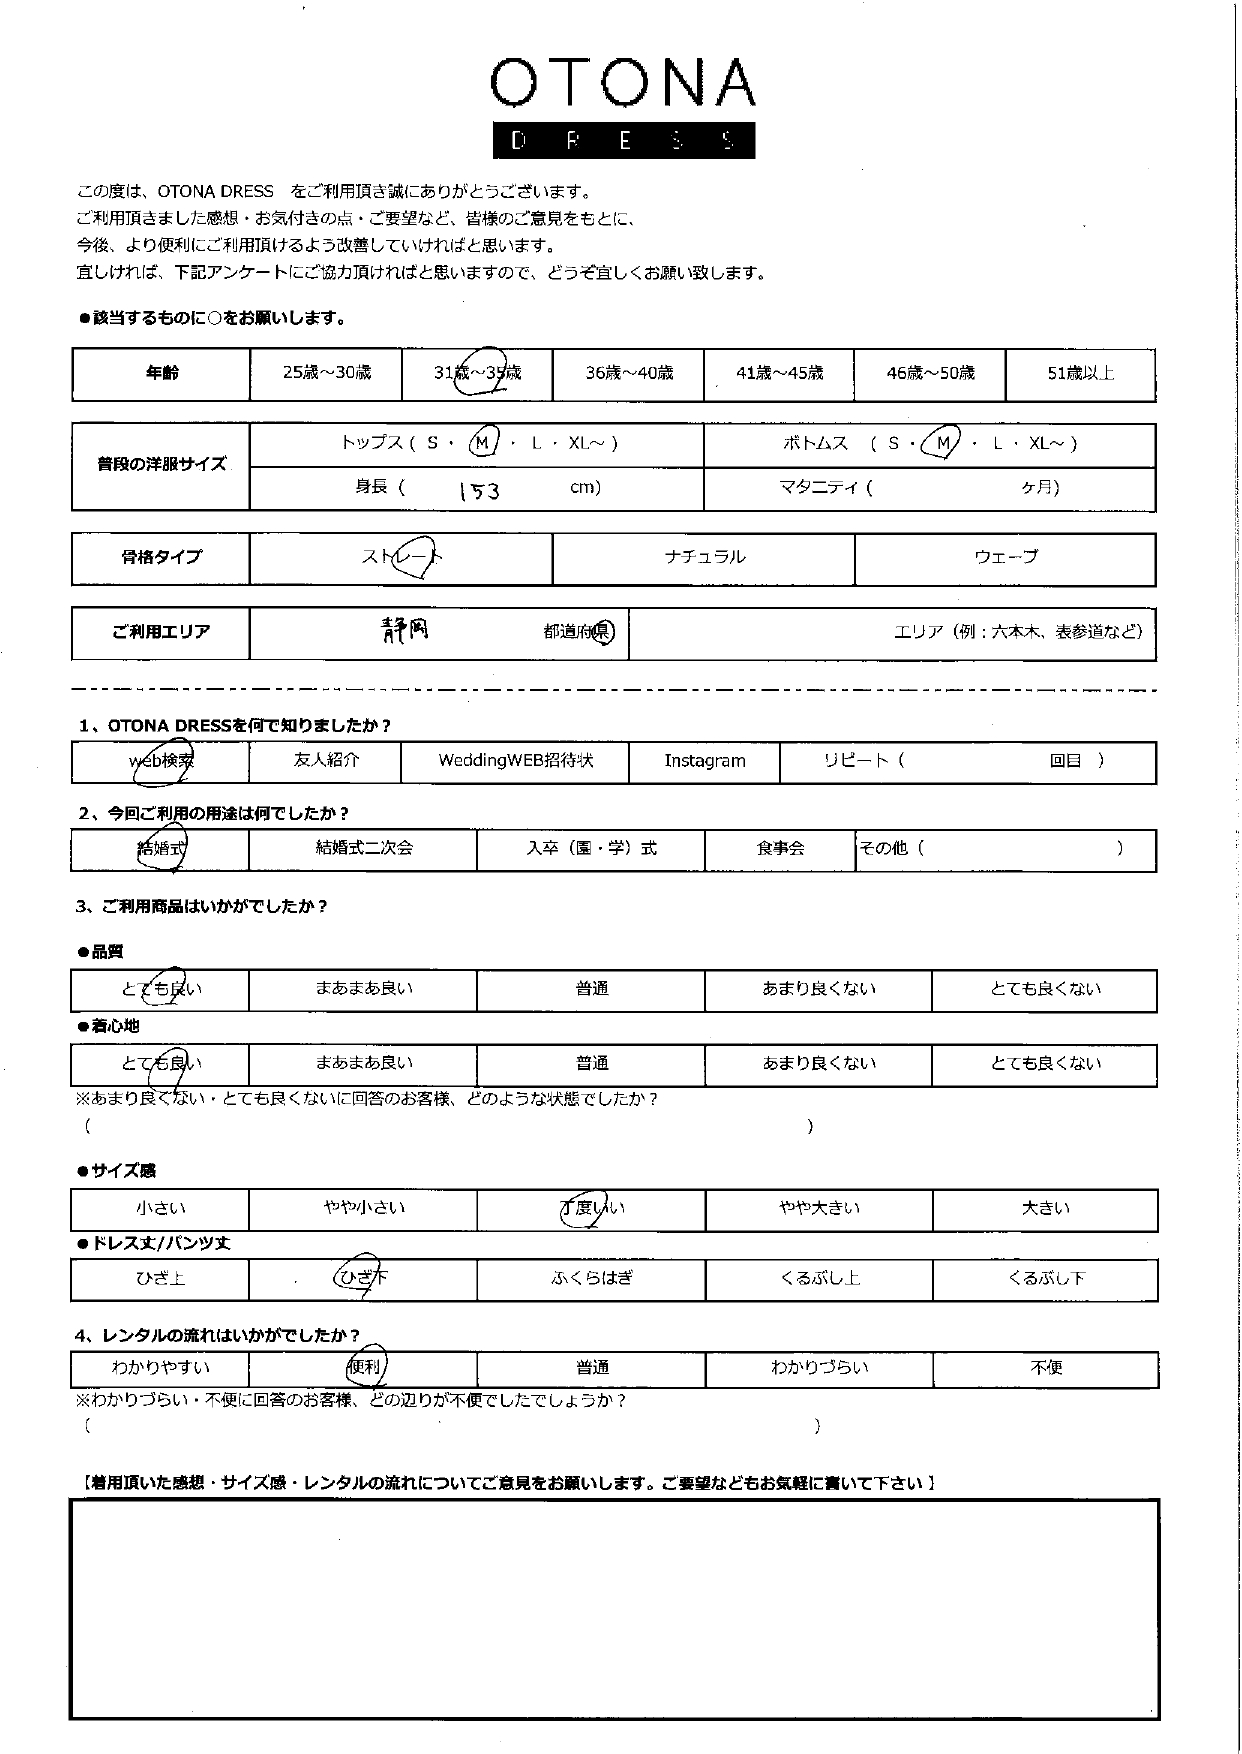 OTONA
DRESS
この度は、OTONA DRESS　をご利用頂き誠にありがとうございます。
ご利用頂きました感想・お気付きの点・ご要望など、皆様のご意見をもとに、
今後、より便利にご利用頂けるよう改善していければと思います。
宜しければ、下記アンケートにご協力頂ければと思いますので、どうぞ宜しくお願い致します。
●該当するものに○をお願いします。
年齢 25歳～30歳 31歳～35歳 36歳～40歳 41歳～45歳 46歳～50歳 51歳以上
普段の洋服サイズ トップス ( S ・ M ・ L ・ XL～ ) ボトムス ( S ・ M ・ L ・ XL～ )
身長 ( 153 cm) マタニティ ( ヶ月)
骨格タイプ ストレート ナチュラル ウェーブ
ご利用エリア 静岡 都道府県 エリア（例：六本木、表参道など）
1、OTONA DRESSを何で知りましたか？
web検索 友人紹介 WeddingWEB招待状 Instagram リピート（ 回目 ）
2、今回ご利用の用途は何でしたか？
結婚式 結婚式二次会 入卒（園・学）式 食事会 その他（ ）
3、ご利用商品はいかがでしたか？
●品質
とても良い まあまあ良い 普通 あまり良くない とても良くない
●着心地
とても良い まあまあ良い 普通 あまり良くない とても良くない
※あまり良くない・とても良くないに回答のお客様、どのような状態でしたか？
（ ）
●サイズ感
小さい やや小さい 丁度いい やや大きい 大きい
●ドレス丈/パンツ丈
ひざ上 ひざ下 ふくらはぎ くるぶし上 くるぶし下
4、レンタルの流れはいかがでしたか？
わかりやすい 便利 普通 わかりづらい 不便
※わかりづらい・不便に回答のお客様、どの辺りが不便でしたでしょうか？
（ ）
【着用頂いた感想・サイズ感・レンタルの流れについてご意見をお願いします。ご要望などもお気軽に書いて下さい】